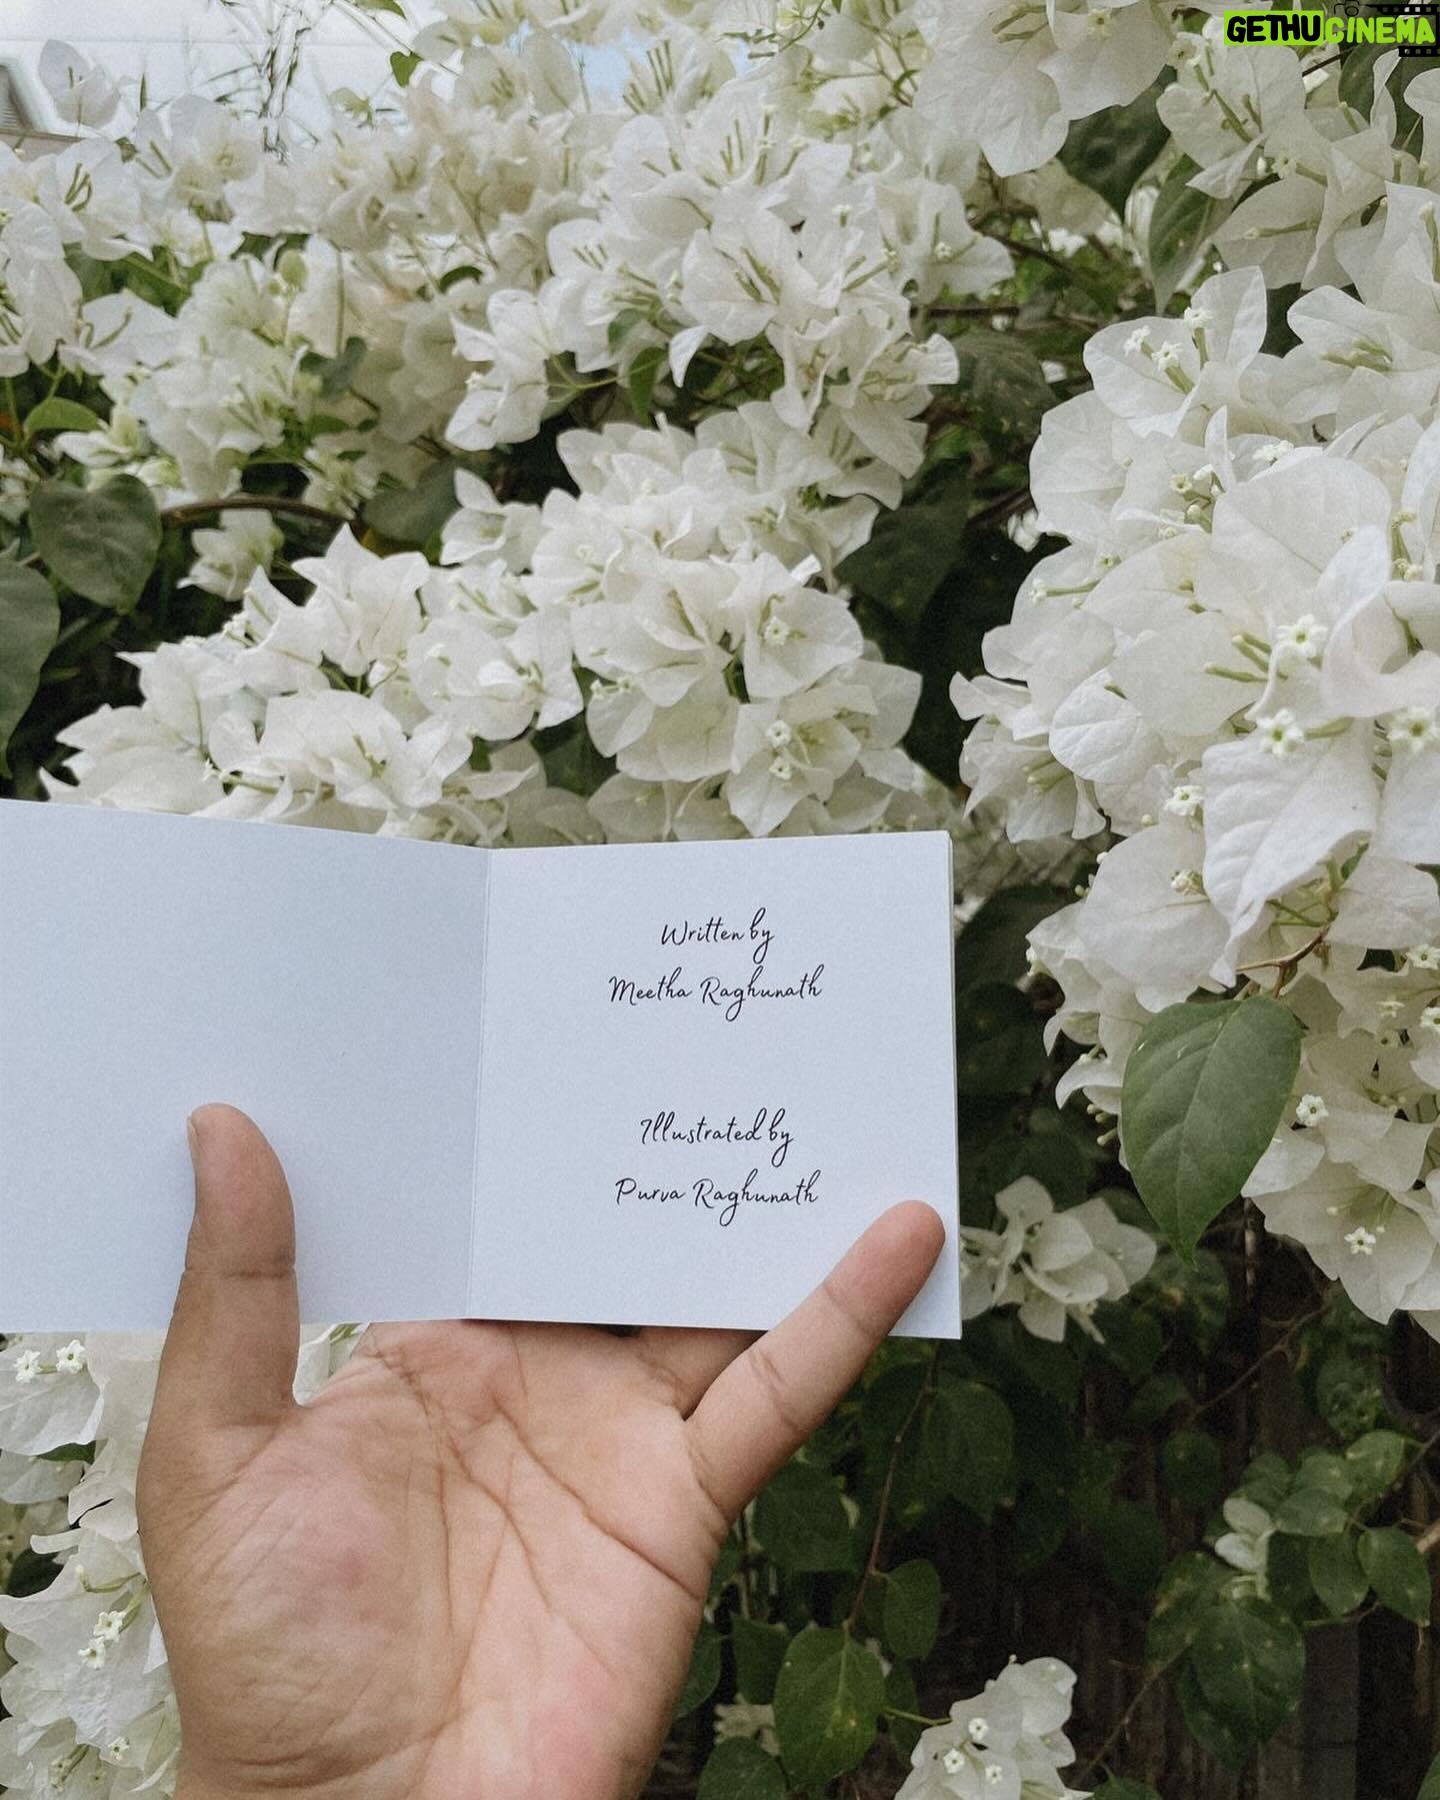 GETHUCINEMA
Written by
Meetha Raghunath
Illustrated by
Purva Raghunath